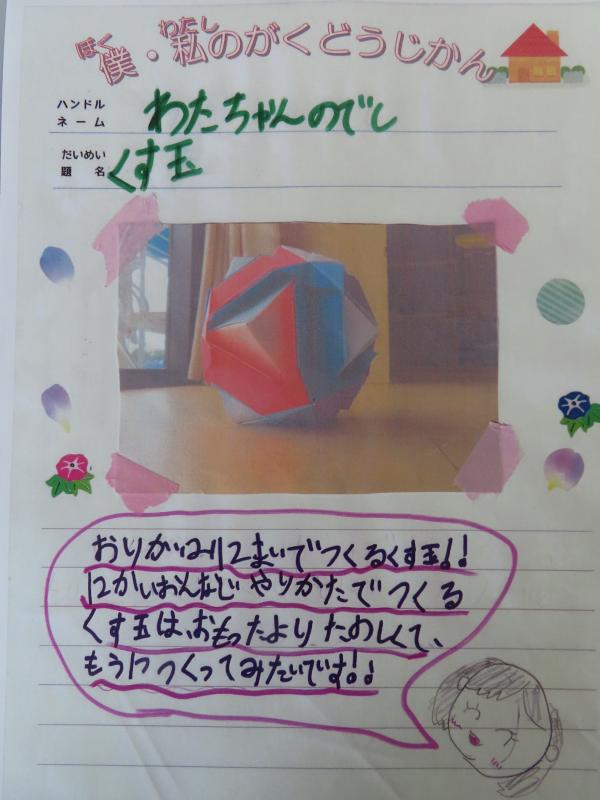 ぼく わたし
僕・私のがくどうじかん
ハンドル
ネーム
わたちゃんのでし
だいめい
題名
くす玉
おりがみ12まいでつくるくす玉!!
12かいおんなじやりかたでつくる
くす玉は、おもったよりたのしくて、
もう1つつくってみたいです!!